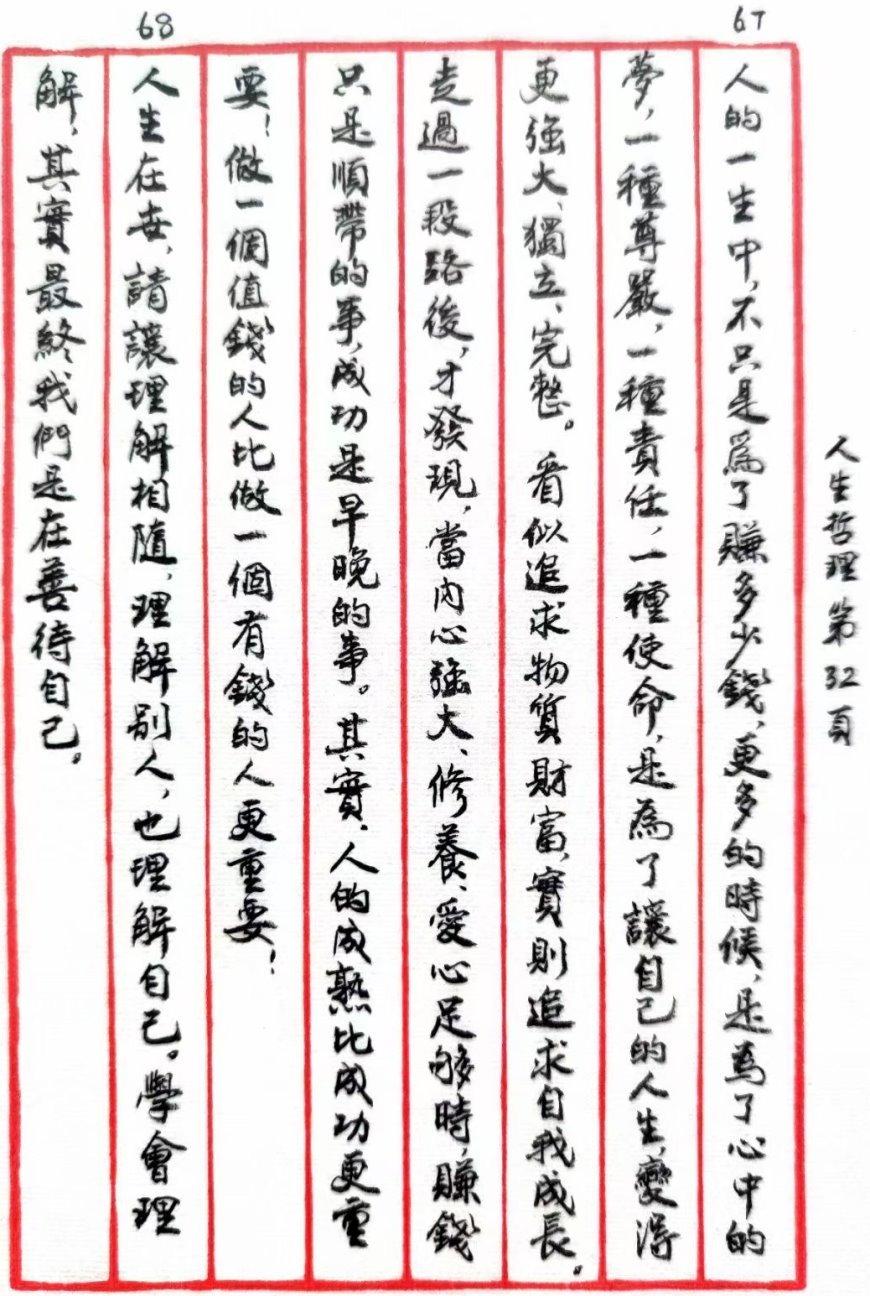 人生哲理 第32頁
67
人的一生中，不只是為了賺多少錢，更多的時候，是為了心中的
夢，一種尊嚴，一種責任，一種使命，是為了讓自己的人生，變得
更強大、獨立、完整。看似追求物質財富，實則追求自我成長。
走過一段路後，才發現，當內心強大、修養、愛心足够時，賺錢
只是順帶的事，成功是早晚的事。其實，人的成熟比成功更重
要！做一個值錢的人比做一個有錢的人更重要！
68
人生在世，請讓理解相隨，理解别人，也理解自己。學會理
解，其實最終我們是在善待自己。